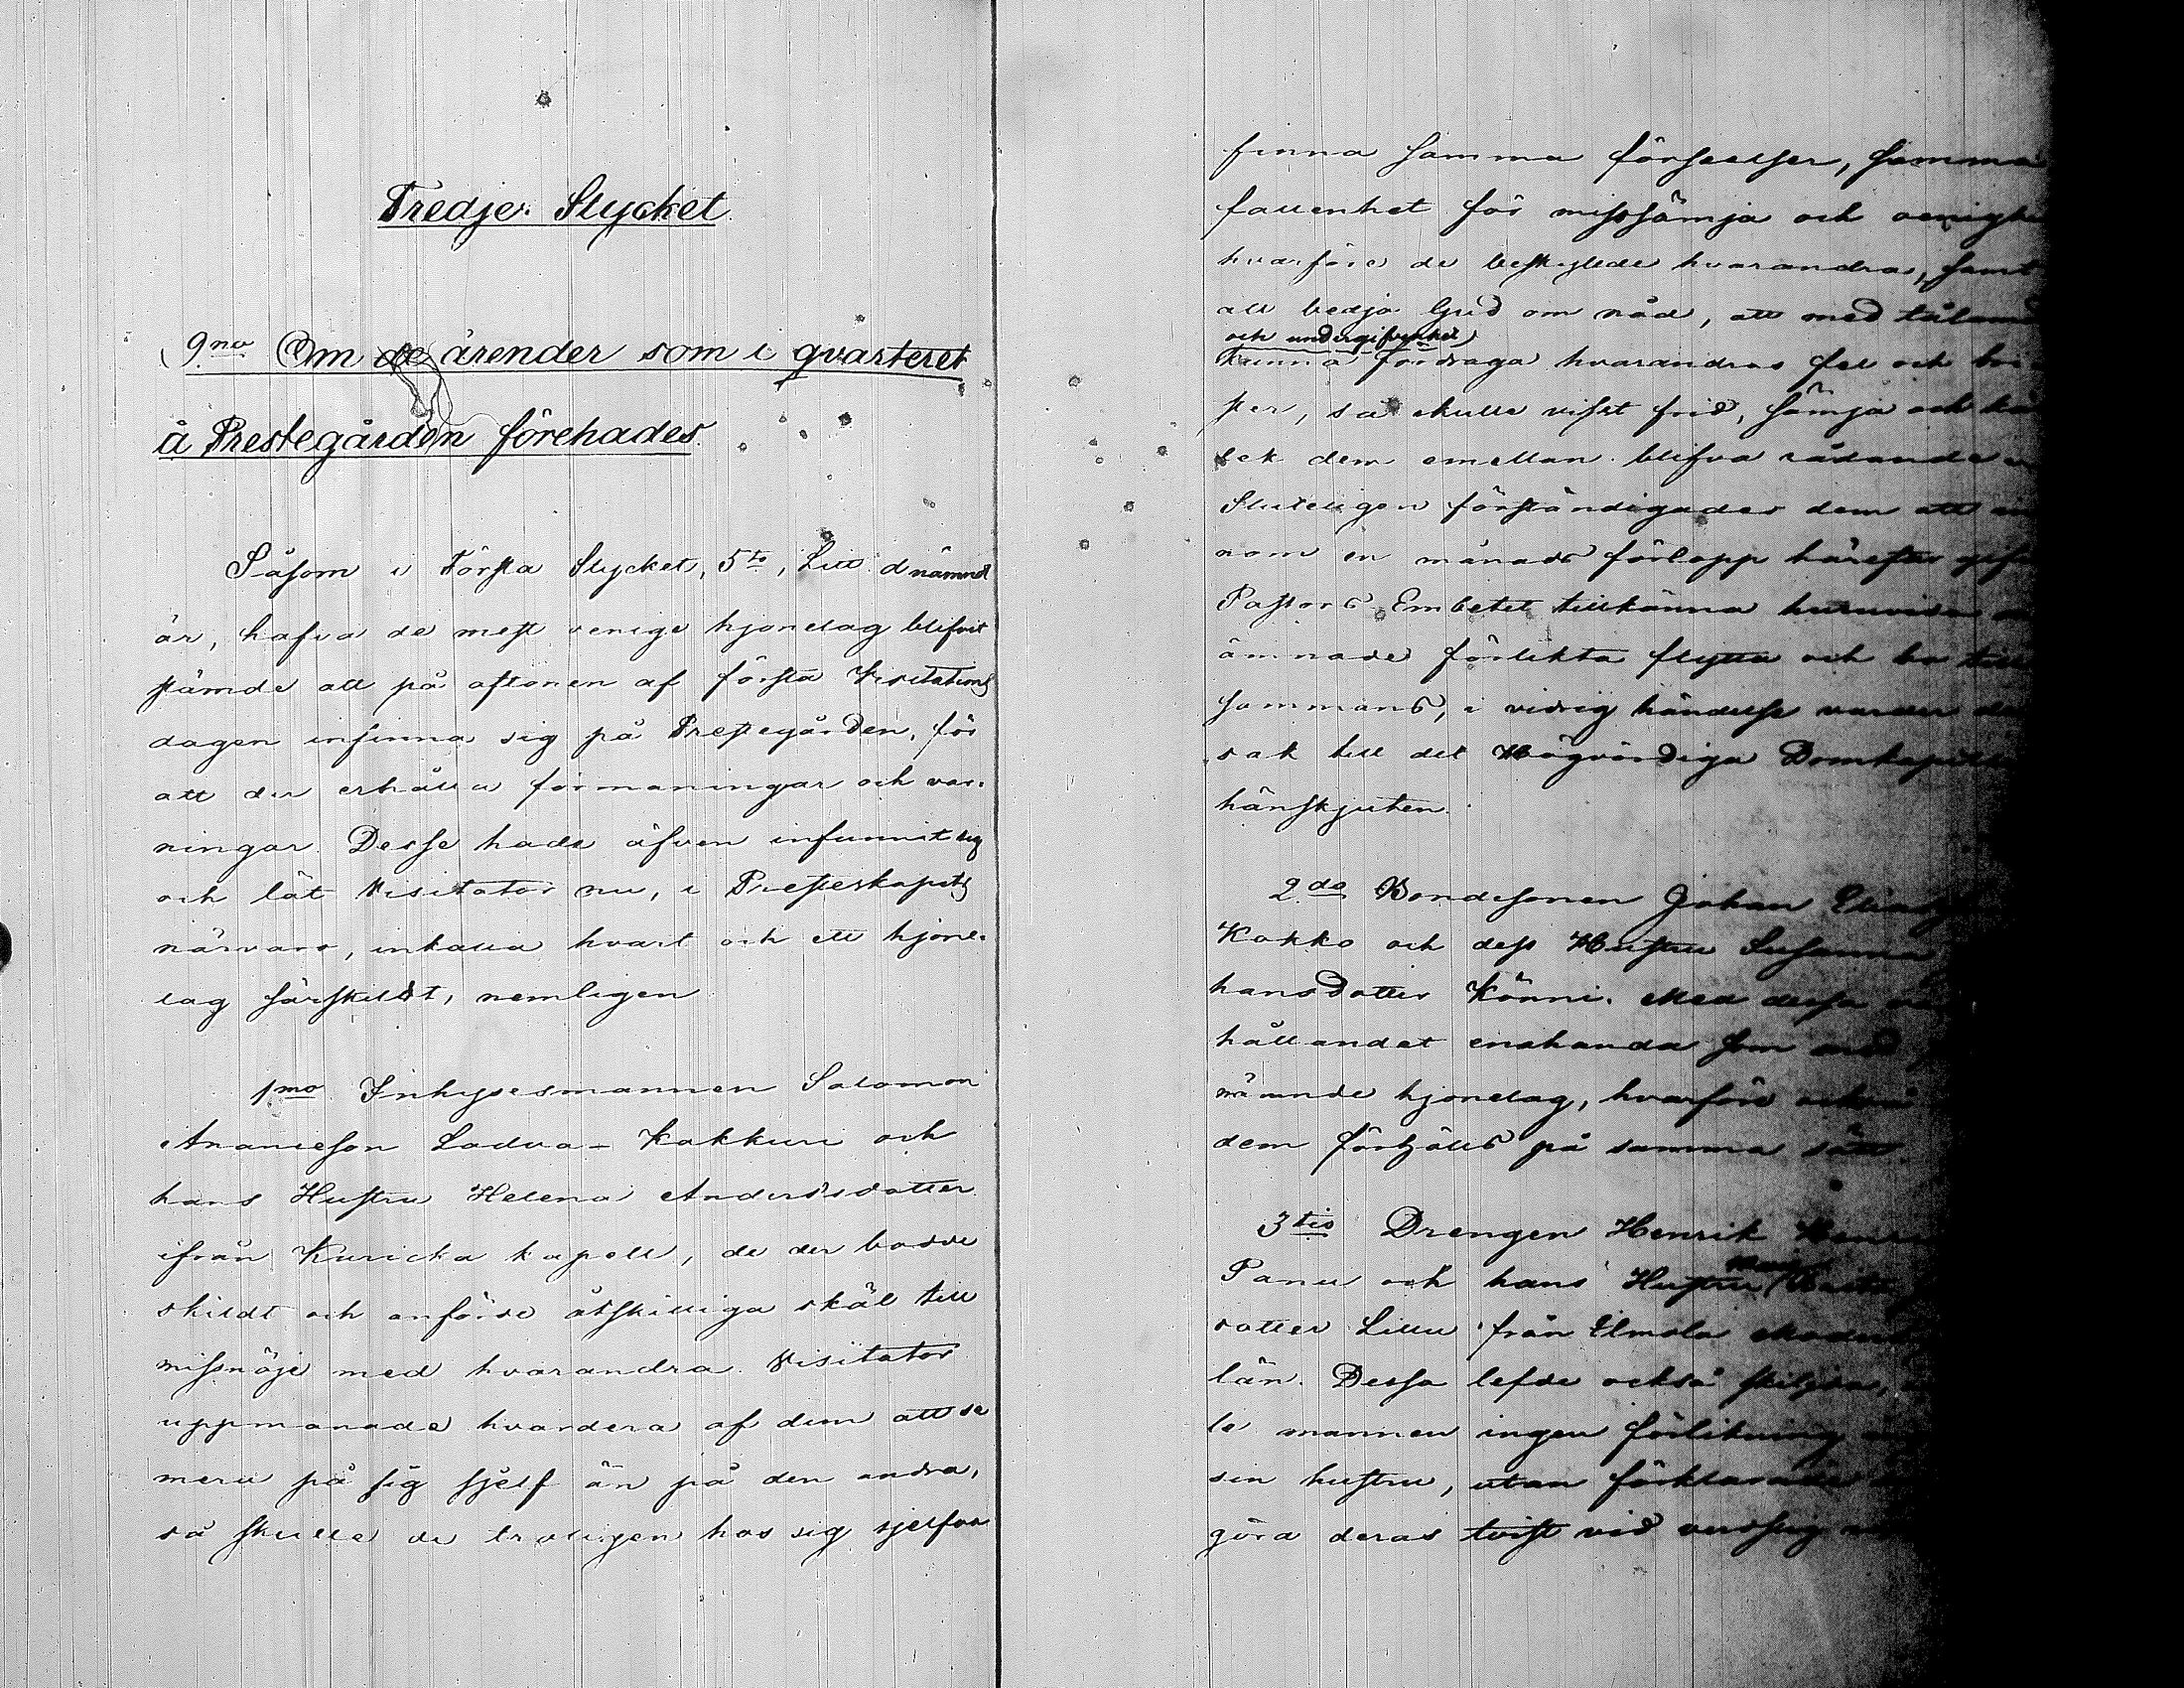 Tredje Stycket.
9no Om de ärender som i qvarteret
å Prestegården förehades.
Såsom i Första Stycket, 5to, Litt. d nämndt
är, hafva de mest oenige hjonelag blifvit
stämde att på aftonen af första Visitations
dagen infinna sig på Prestegården, för
att der erhålla förmaningar och var-
ningar. Desse hade äfven infunnit sig
och lät Visitator nu, i Presterskapets
närvaro, inkalla hvart och ett hjone-
lag särskildt, nemligen
1mo Inhysesmannen Salomon
Ananieson Ladva-Kakkuri och
hans Hustru Helena Andersdotter
ifrån Kuricka kapell, de der bodde
skildt och anförde åtskilliga skäl till
missnöje med hvarandra. Visitator
uppmanade hvardera af dem att se
mera på sig sjelf än på den andra,
så skulle de troligen hos sig sjelfva
finna samma förseelser, samma
fallenhet för misssämja och oenighe
hvarföre de beskyllde hvarandra, samt
att bedja Gud om nåd, att med tålamod
och undergifvenhet
kunna fördraga hvarandras fel och bri
ster, så skulle visst frid, sämja och kär
lek dem emellan blifva rådande
Sluteligen förständigades dem att in
nom en månads förlopp härefter gifva
Pastors Embetet tillkänna huruvida
ämnade förlikta flytta och bo till
sammans, i vidrig händelse varder
sak till det Högvördiga Domkapitlet
hänskjuten.
2do Bondesonen Johan Elias
Kokko och dess Hustru Susanna
hansdotter Könni. Med dessa
hållandet enahanda som med
nämnde hjonelag, hvarföre också
dem förhölls på samma sätt.
3tio Drengen Henrik
Panu och hans Hustru
dotter Lillu från Ilmola Moder
län. Dessa lefde också skiljda,
le mannen ingen förlikning
sin hustru, utan förklarade
göra deras tvist vid verdslig